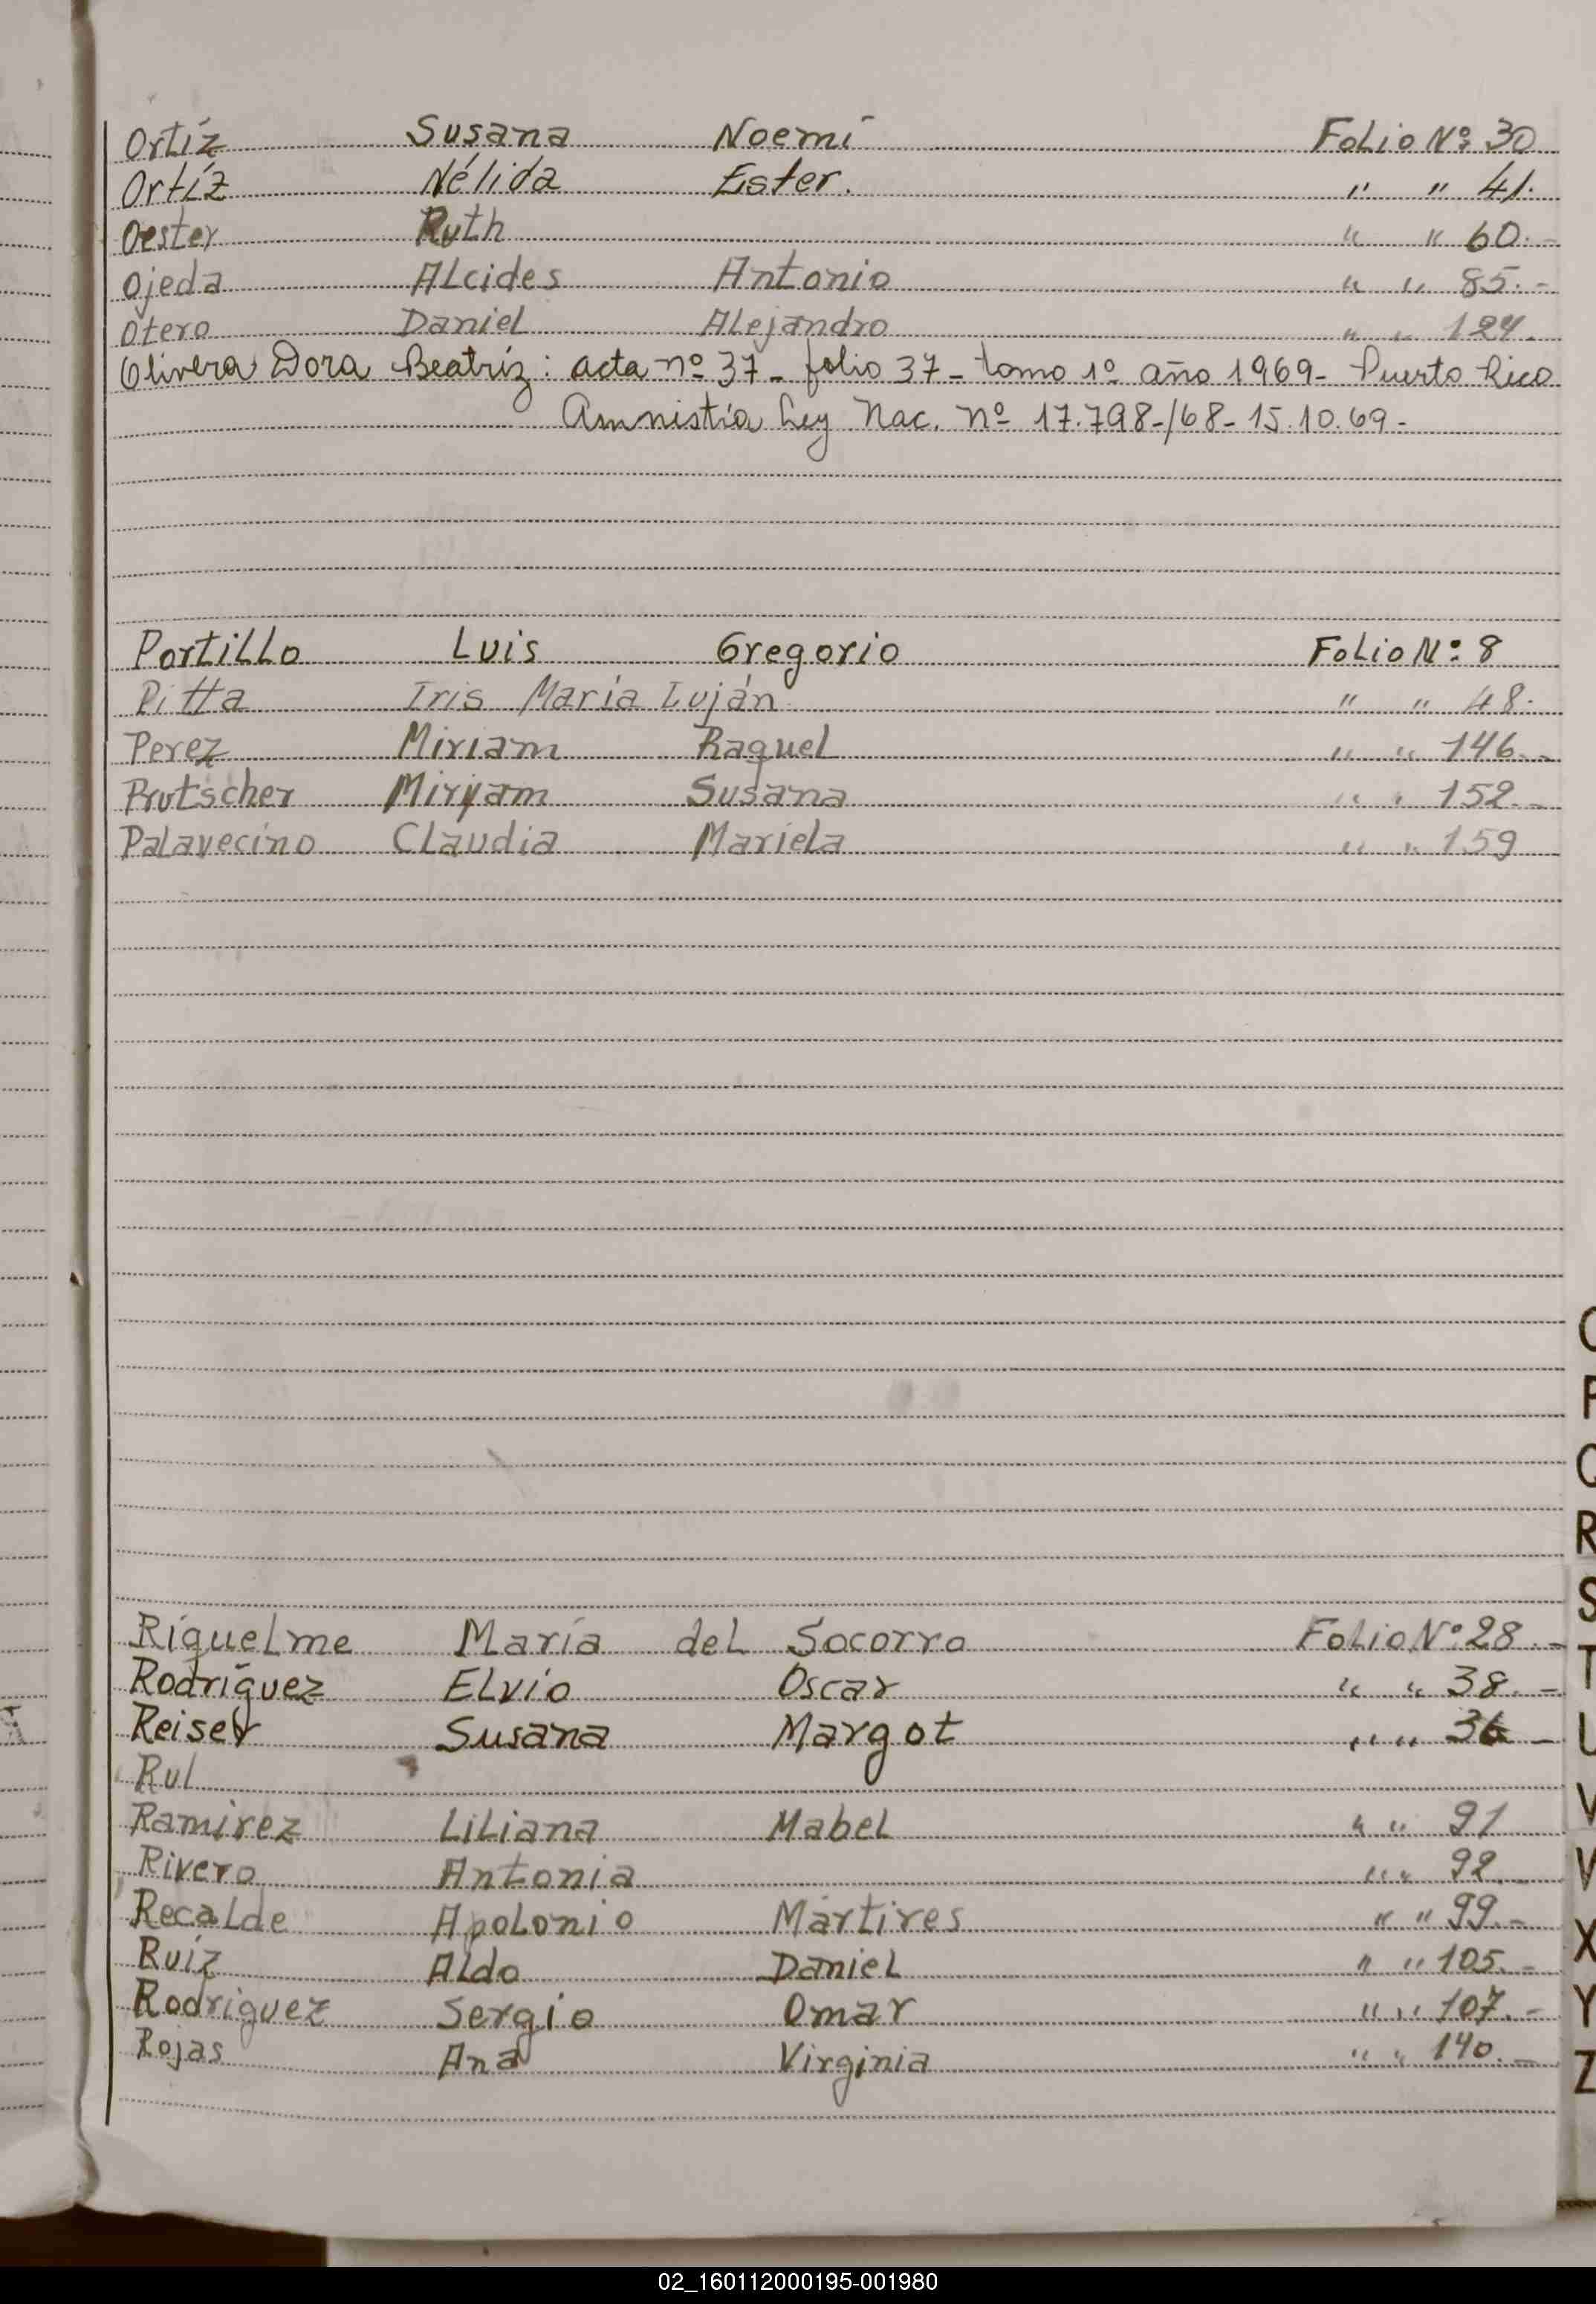 Ortíz Susana Noemí Folio Nº 30
Ortíz Nélida Ester. " " 41.
Oester Ruth " " 60.-
Ojeda Alcides Antonio " " 85.-
Otero Daniel Alejandro " " 124.
Olivera Dora Beatríz: acta nº 37- folio 37- tomo 1º año 1969- Puerto Rico
Amnistía Ley Nac. nº 17.798-/68- 15.10.69-
Portillo Luis Gregorio Folio Nº 8
Pitta Iris María Luján " " 48.
Perez Miriam Raquel " " 146.-
Prutscher Miryam Susana " " 152.-
Palavecino Claudia Mariela " " 159
Riquelme María del Socorro Folio Nº 28.-
Rodríguez Elvio Oscar " " 38.-
Reiser Susana Margot " " 36-
Rul
Ramirez Liliana Mabel " " 91
Rivero Antonia " " 92.-
Recalde Apolonio Mártires " " 99.-
Ruíz Aldo Daniel " " 105.-
Rodriguez Sergio Omar " " 107.-
Rojas Ana Virginia " " 140.-
R
S
T
U
V
X
Y
Z
02_160112000195-001980